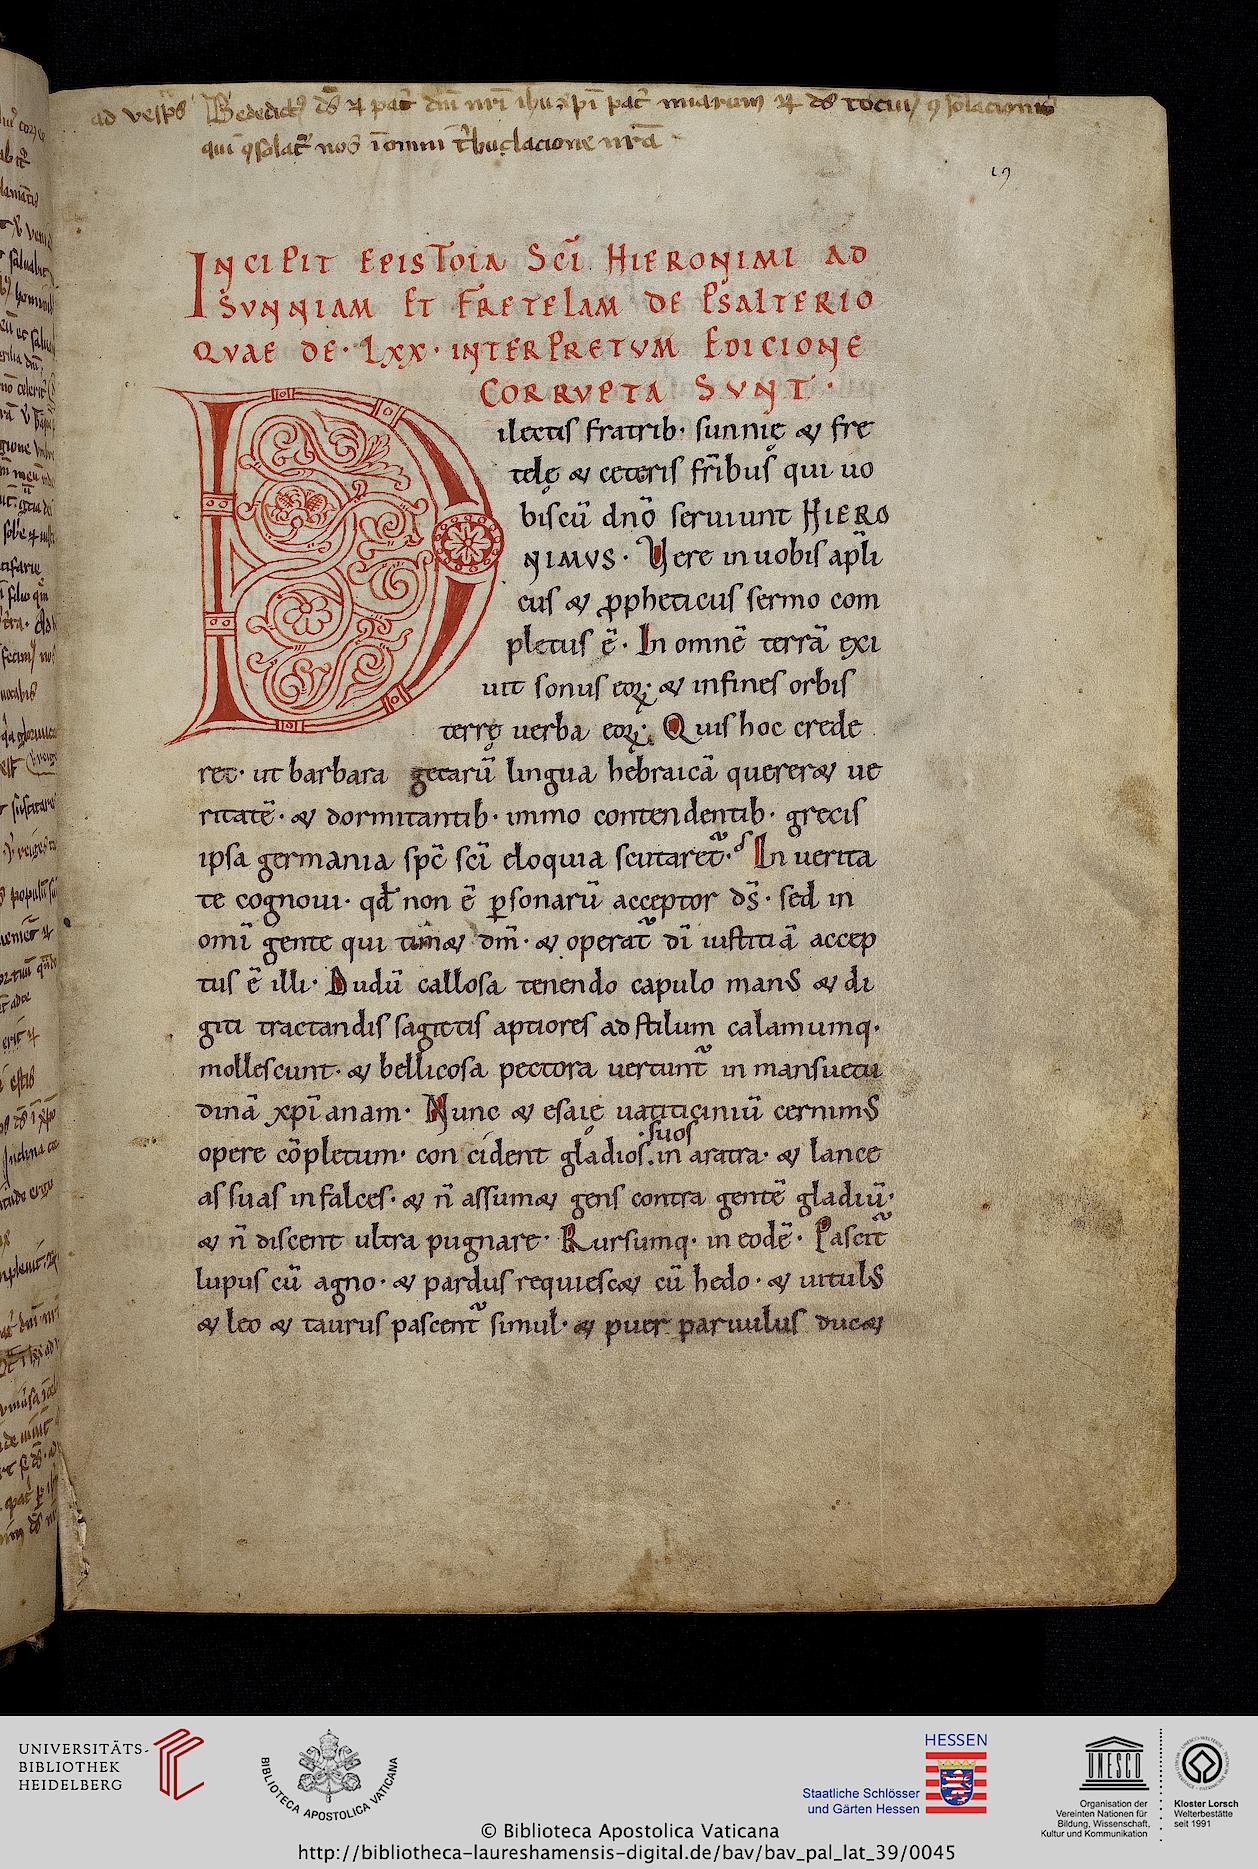 ad vesp̄s Bededict᷒ ds̄ ⁊ pat̄ dn̄i nr̄i ihu xp̄i pat̄ m̄iarum ⁊ ds̄ tociꝰ ꝯsolacionis
qui ꝯsolat̄ nos ī omni t̄buclacione nr̄a
19
INCIPIT EPISTOLA SC̄I HIERONIMI AD
SUNNIAM ET FRETELAM DE PSALTERIO
QUAE DE · LXX · INTERPRETUM EDICIONE
CORRUPTA SUNT ·
Dilectis fratrib· sunnię & fre
telę & ceteris fr̄ibus qui uo
biscū dn̄o seruiunt HIERO
NIMUS · Vere in uobis ap̄li
cus & ꝓpheticus sermo com
pletus ē · In omnē terrā exi
uit sonus eoꝝ · & in fines orbis
terrę uerba eoꝝ · Quis hoc crede
ret · ut barbara getarū lingua hebraicā quereret ue
ritatē · & dormitantib · immo contendentib · grecis
ipsa germania sp̄c sc̄i eloquia scutaret̄ · In uerita
te cognoui · qđ non ē ꝑsonarū acceptor ds̄ · sed in
omī gente qui timet dm̄ · & operat̄ di iustitiā accep
tus ē illi · Dudū callosa tenendo capulo manꝰ & di
giti tractandis sagittis aptiores ad stilum calamumq·
mollescunt · & bellicosa pectora uertunt̄ in mansuetu
dinā xp̄ianam · Nunc & esaię uaticiniū cernimꝰ
opere cōpletum · concident gladios suos in aratra · & lance
as suas in falces · & n̄ assumet gens contra gentē gladiū ·
& n̄ discent ultra pugnare · Rursumq· in eodē · Pascit̄
lupus cū agno · & pardus requiescet cū hedo · & uitulꝰ
& leo & taurus pascent̄ simul · & puer paruulus ducet
UNIVERSITÄTS-
BIBLIOTHEK
HEIDELBERG
BIBLIOTECA APOSTOLICA VATICANA
HESSEN
Staatliche Schlösser
und Gärten Hessen
UNESCO
Organisation der
Vereinten Nationen für
Bildung, Wissenschaft,
Kultur und Kommunikation
Kloster Lorsch
Welterbestätte
seit 1991
© Biblioteca Apostolica Vaticana
http://bibliotheca-laureshamensis-digital.de/bav/bav_pal_lat_39/0045